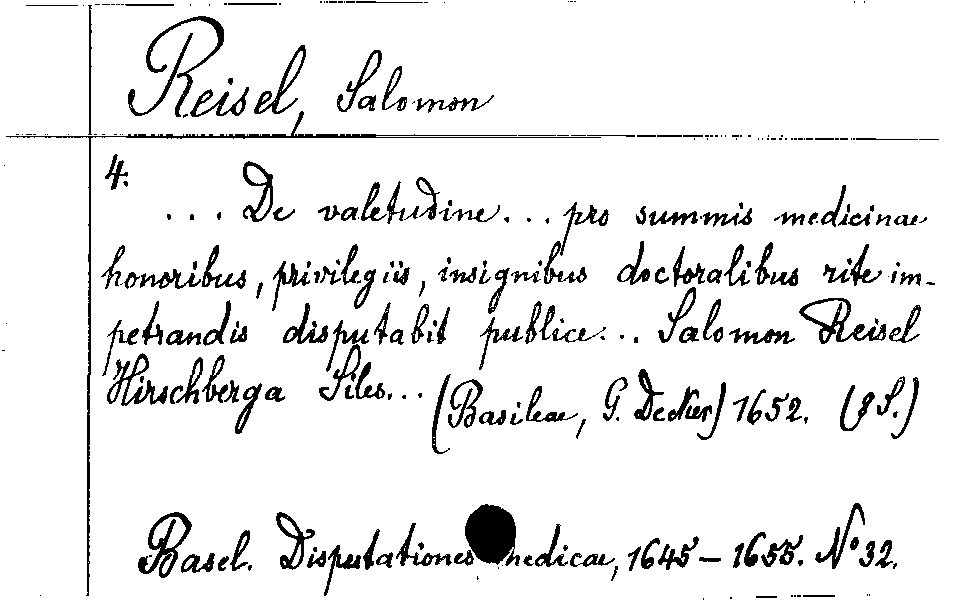 Reisel, Salomon
4.
... De valetudine ... pro summis medicinae
honoribus, privilegiis, insignibus doctoralibus rite im-
petrandis disputabit publice ... Salomon Reisel
Hirschberga Siles... (Basileae, G. Decker) 1652. (8 S.)
Basel. Disputationes medicae, 1645 – 1655. No 32.